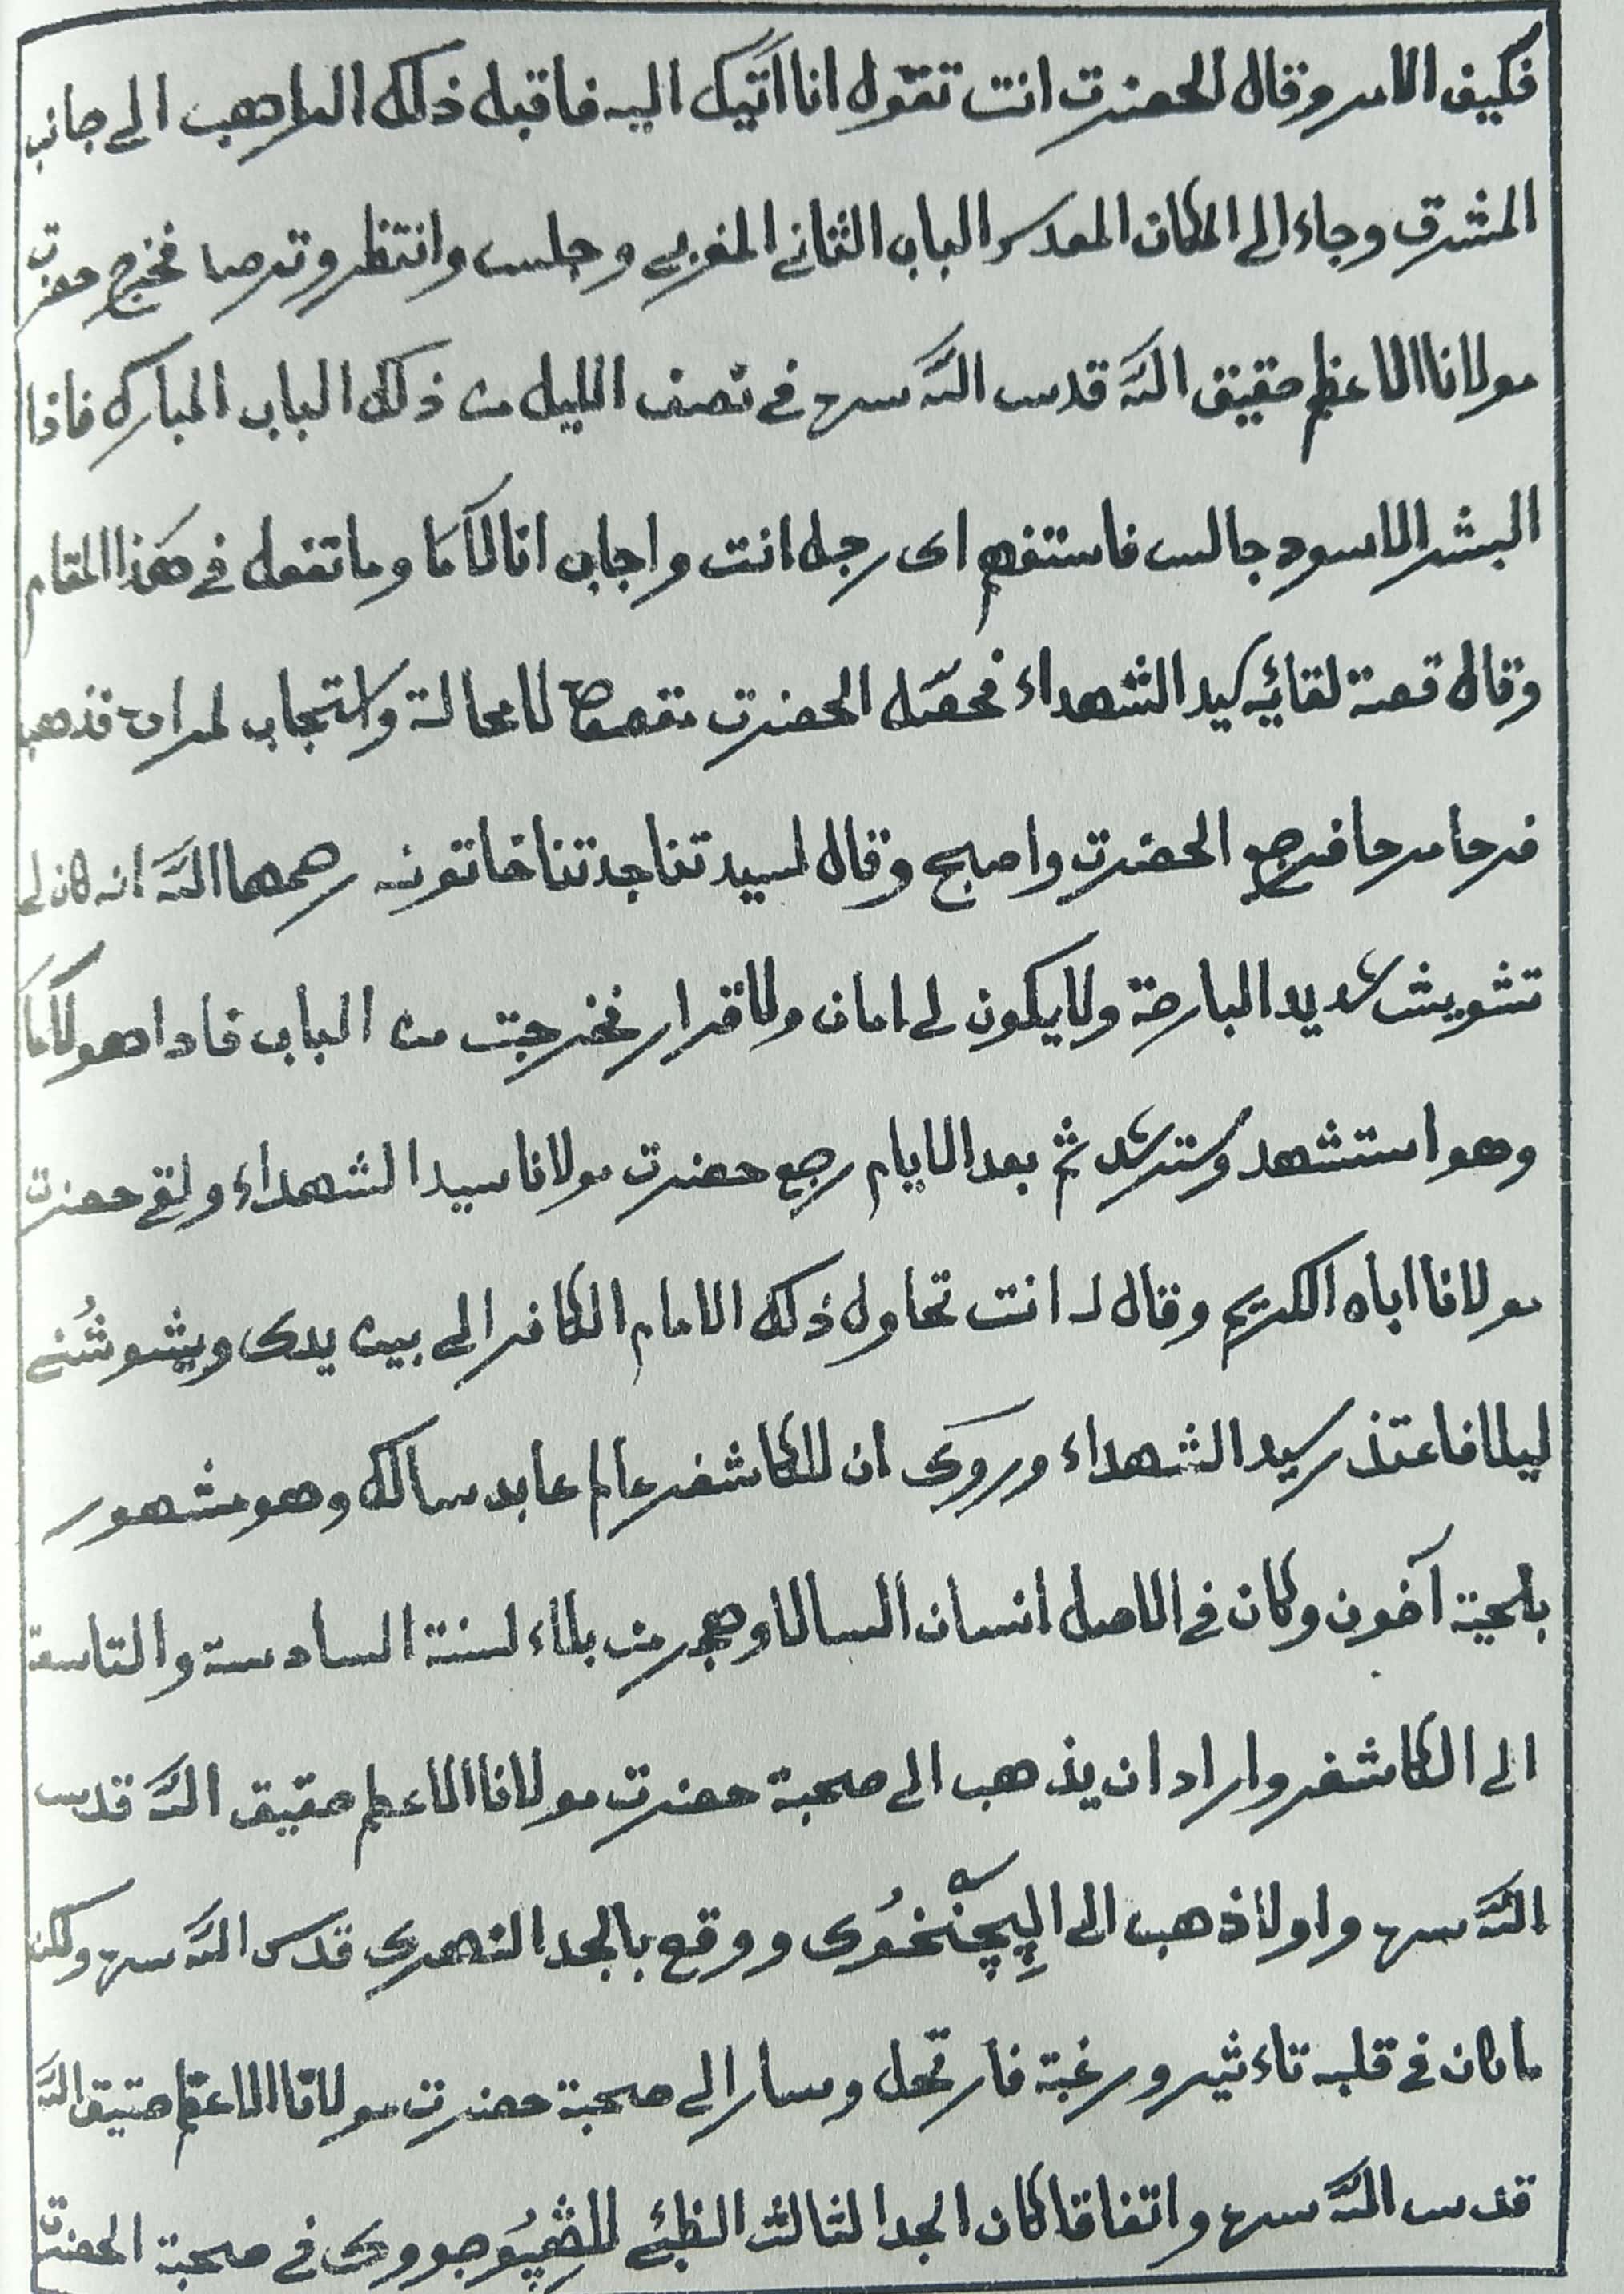 فكيف الامر وقال الحضرت انت تقول انا اتيك اليه فاقبل ذلك الراهب الى جانب
المشرق وجاء الى المكان المقدس الباب الثاني المغربي وجلس وانتظر وترصا فخرج حضرت
مولانا الاعظم حقيق الله قدس الله سره في نصف الليل من ذلك الباب المبارك فاذا
البشر الاسود جالس فاستفهم اى رجل انت واجاب انا لاما وما تفعل في هذا المقام
وقال قصة لقائه سيد الشهداء فحصل الحضرت لامحالة واستجاب لمرات فذهب
فرحا مرحا فرجع الحضرت واصبح وقال لسيدتنا جدتنا خاتونه رحمهما الله انه كان لي
تشويش شديد البارحة ولايكون لي امان ولاقرار فخرجت من الباب فاداهو لاما
وهو استشهد وسترشد ثم بعد الايام رجع حضرت مولانا سيد الشهداء ولقي حضرت
مولانا اباه الكريم وقال له انت تحاول ذلك الامام الكافر الى بين يدى ويشوشني
ليلا فاعتذر سيد الشهداء وروى ان للكاشفر عالم عابد سالك وهو مشهور
بلحية آخون وكان في الاصل انسان السالا وهجر من بلاء لسنة السادسة والتاسعة
الى الكاشفر واراد ان يذهب الى صحبة حضرت مولانا الاعظم حقيق الله قدس
الله سره واولا ذهب الى ووقع بالجد النهرى قدس الله سره ولكن
ماكان في قلبه تاءثير ورغبة فارتحل وسار الى صحبة حضرت مولانا الاعظم حقيق الله
قدس الله سره واتفاقا كان الجد الثالث في صحبة الحضرت